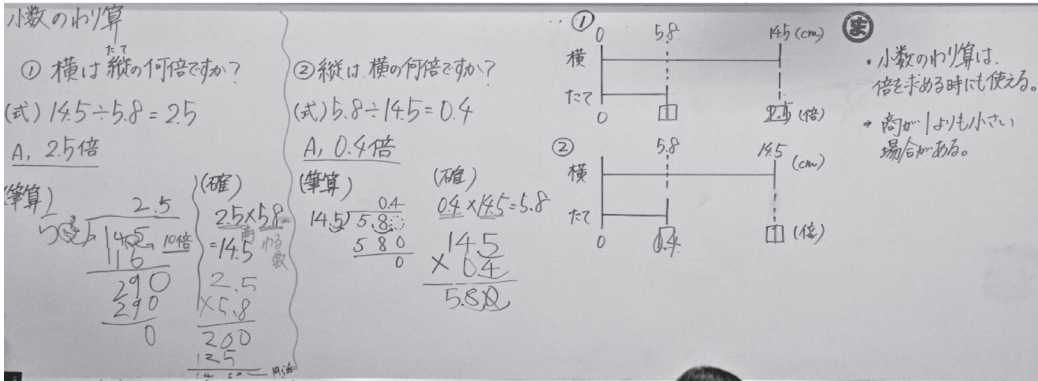 小数のわり算
① 横は縦の何倍ですか?
たて
(式) 14.5÷5.8=2.5
A, 2.5倍
(筆算)
2.5
14.5
10倍
116
290
290
0
(確)
2.5×5.8=
商 わる数
=14.5
2.5
×5.8
200
125
② 縦は、横の何倍ですか?
(式) 5.8÷14.5=0.4
A, 0.4倍
(筆算)
0.4
14.5 5.8
580
0
(確)
0.4×14.5=5.8
14.5
×0.4
5.80
①
0 5.8 14.5 (cm)
横
たて
0 1 2.5 (倍)
②
5.8 14.5 (cm)
横
たて
0 0.4 1 (倍)
ま
・小数のわり算は、
倍を求める時にも使える。
→ 商が1よりも小さい
場合がある。